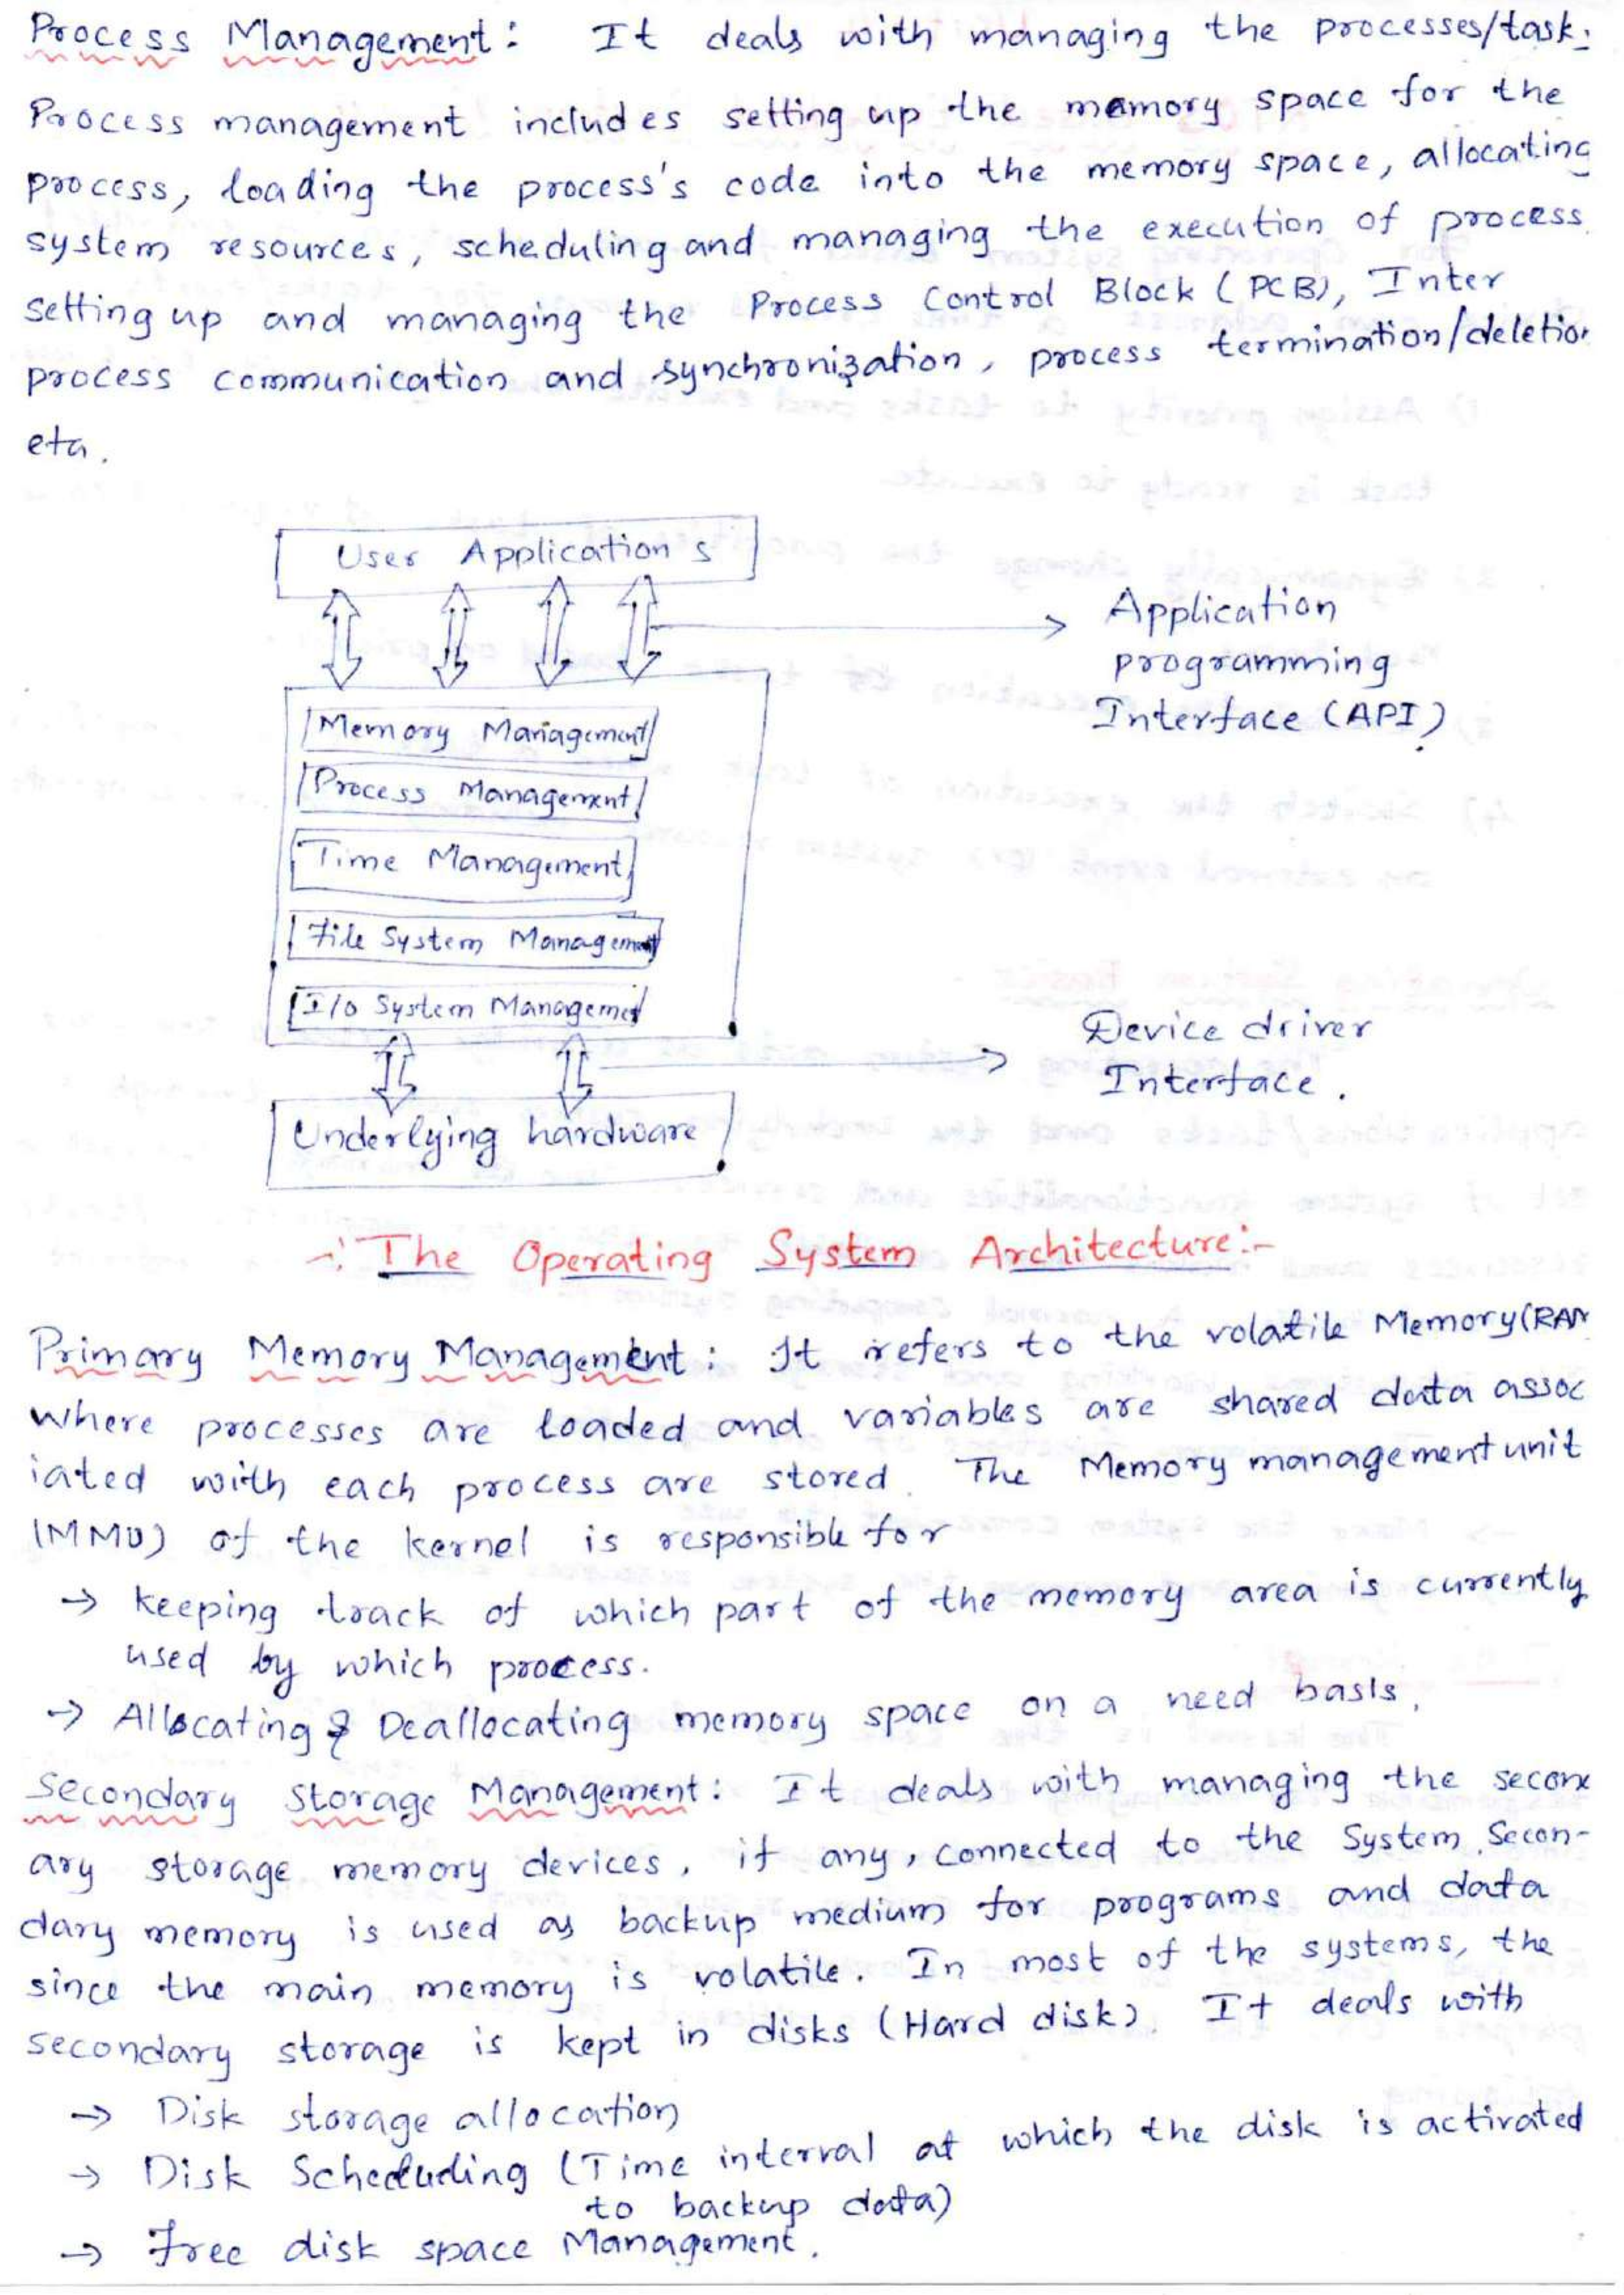 Process Management: It deals with managing the processes/task.
Process management includes setting up the memory space for the
process, loading the process's code into the memory space, allocating
system resources, scheduling and managing the execution of process
setting up and managing the Process Control Block (PCB), Inter
process communication and synchronization, process termination/deletion
etc.
User Applications
Application
programming
Interface (API)
Memory Management
Process Management
Time Management
File System Management
I/O System Management
Device driver
Interface.
Underlying hardware
-: The Operating System Architecture:-
Primary Memory Management: It refers to the volatile Memory(RAM
where processes are loaded and variables are shared data assoc
iated with each process are stored. The Memory management unit
(MMU) of the kernel is responsible for
→ keeping track of which part of the memory area is currently
used by which process.
→ Allocating & Deallocating memory space on a need basis.
Secondary Storage Management: It deals with managing the secon
ary storage memory devices, if any, connected to the System. Secon-
dary memory is used as backup medium for programs and data
since the main memory is volatile. In most of the systems, the
secondary storage is kept in disks (Hard disk). It deals with
→ Disk storage allocation
→ Disk Scheduling (Time interval at which the disk is activated
to backup data)
→ Free disk space Management.